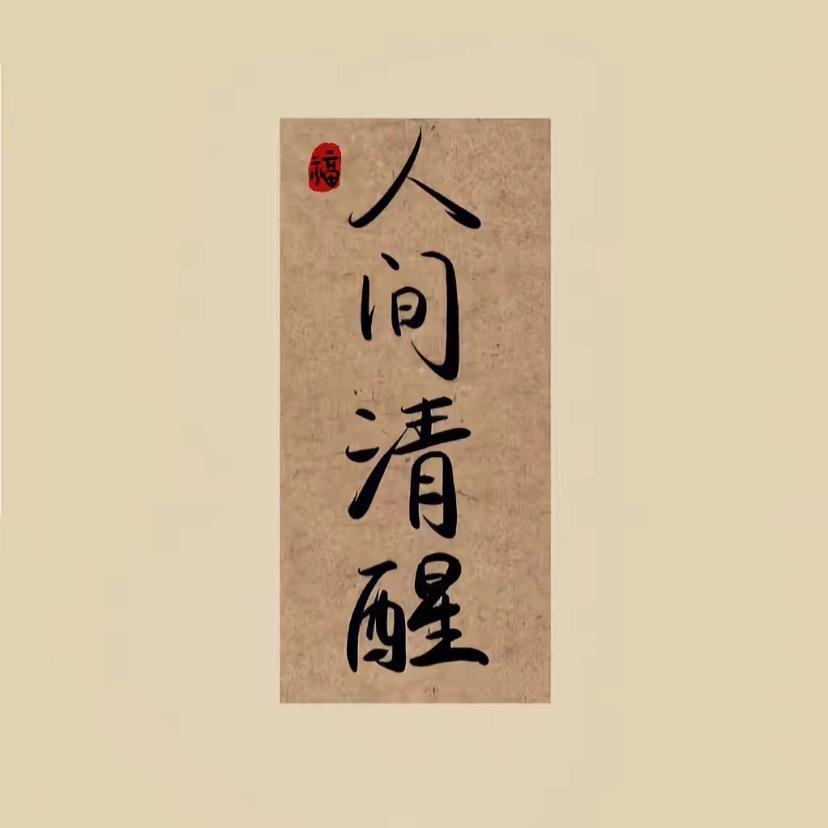 福
人间清醒